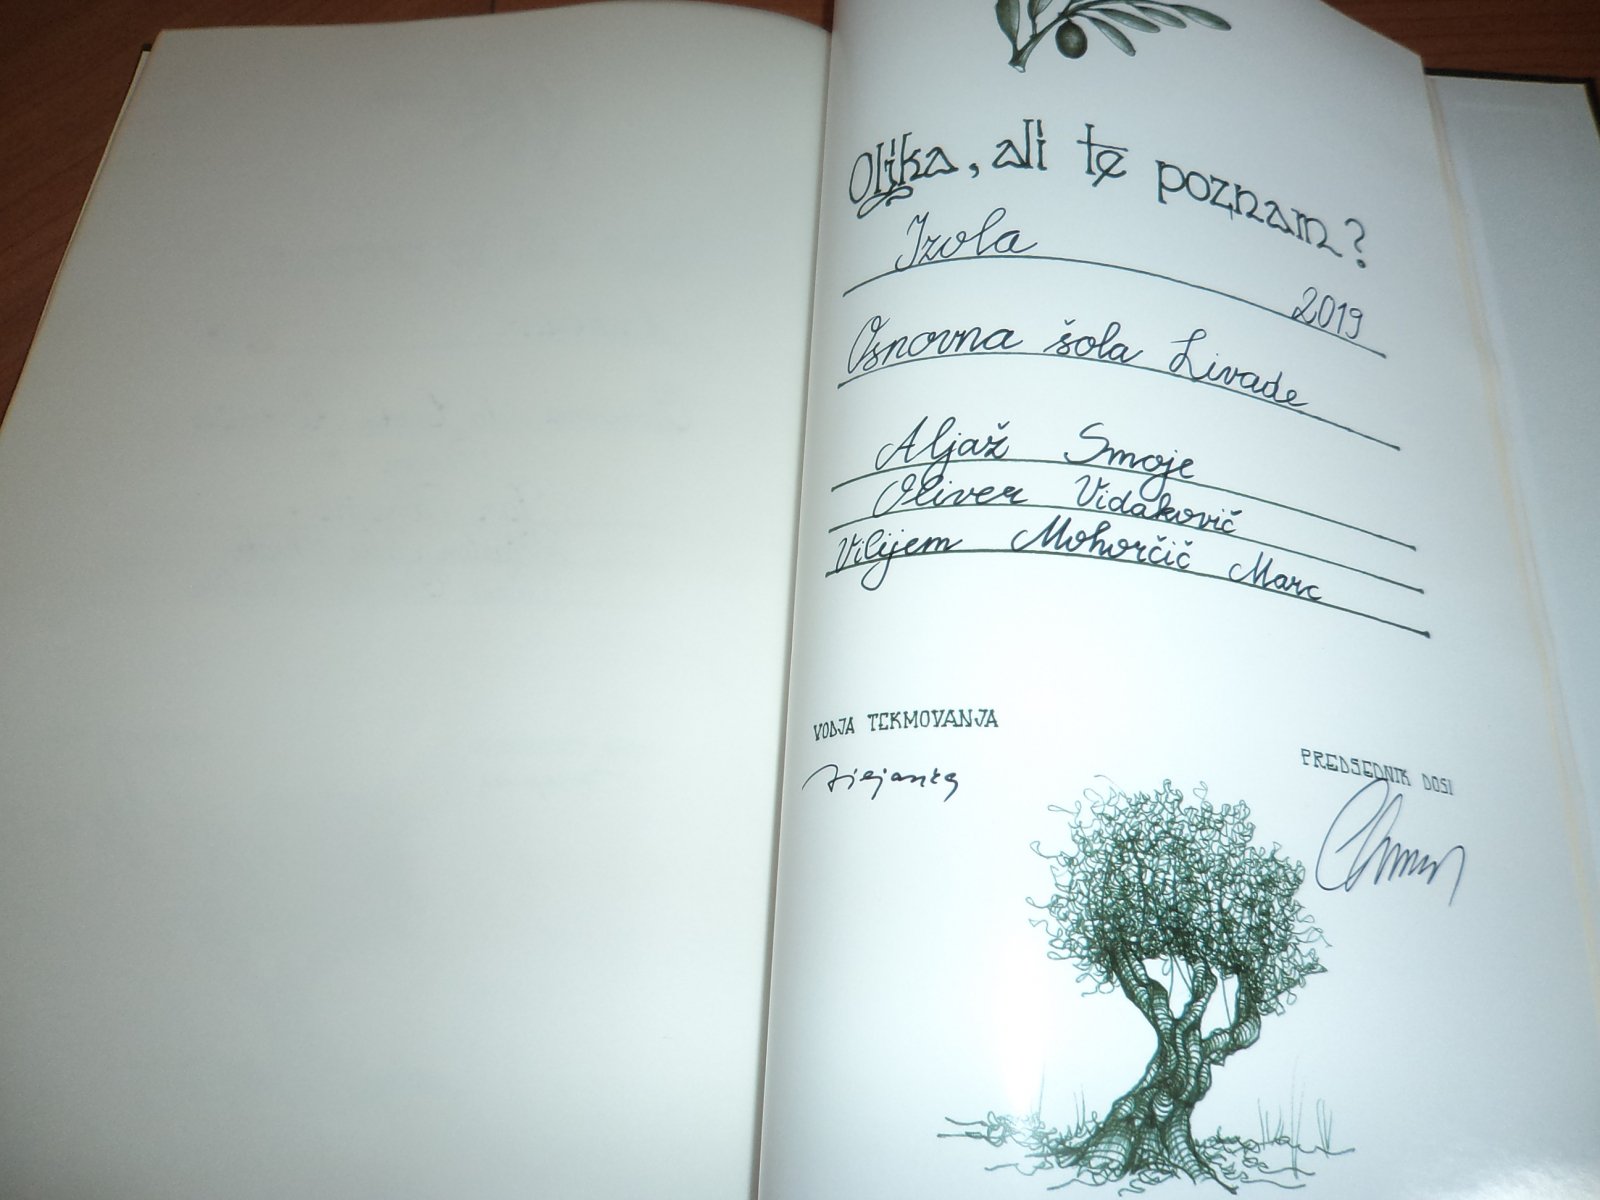 Oljka, ali te poznam?
Izola
2019
Osnovna šola Livade
Aljaž Smoje
Oliver Vidakovič
Vilijem Mohorčič Marc
VODJA TEKMOVANJA
PREDSEDNIK DOSI